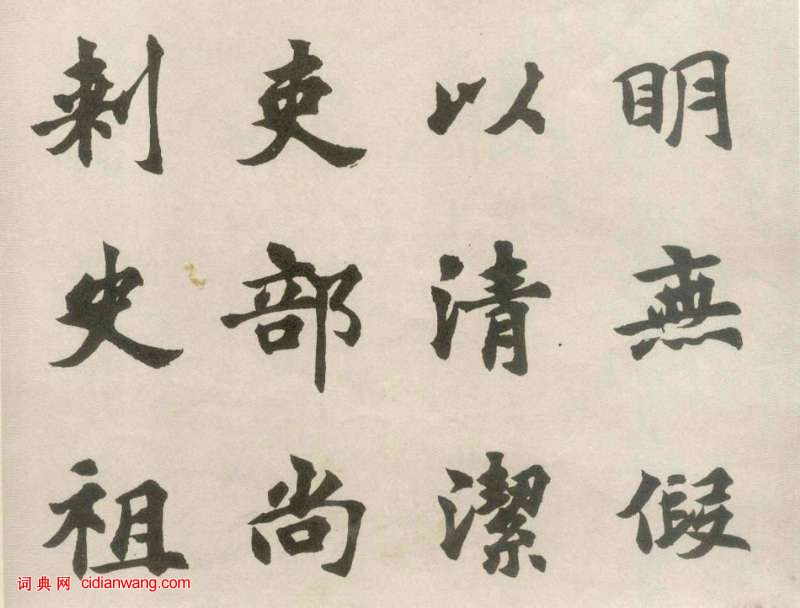 明無假
以清潔
吏部尚
刺史祖
词典网 cidianwang.com